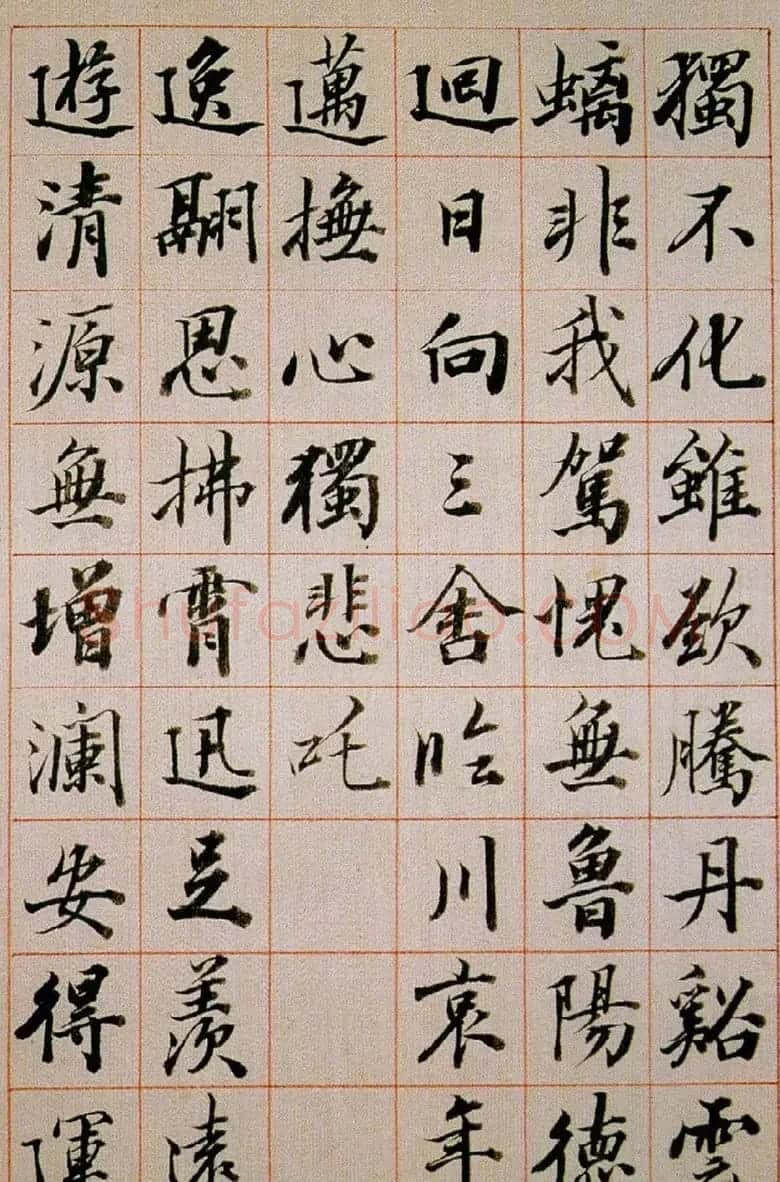 獨不化雖欲騰丹谿雲
螭非我駕愧無魯陽德
迴日向三舍臨川哀年
邁撫心獨悲吒
逸翮思拂霄迅足羨遠
遊清源無增瀾安得運